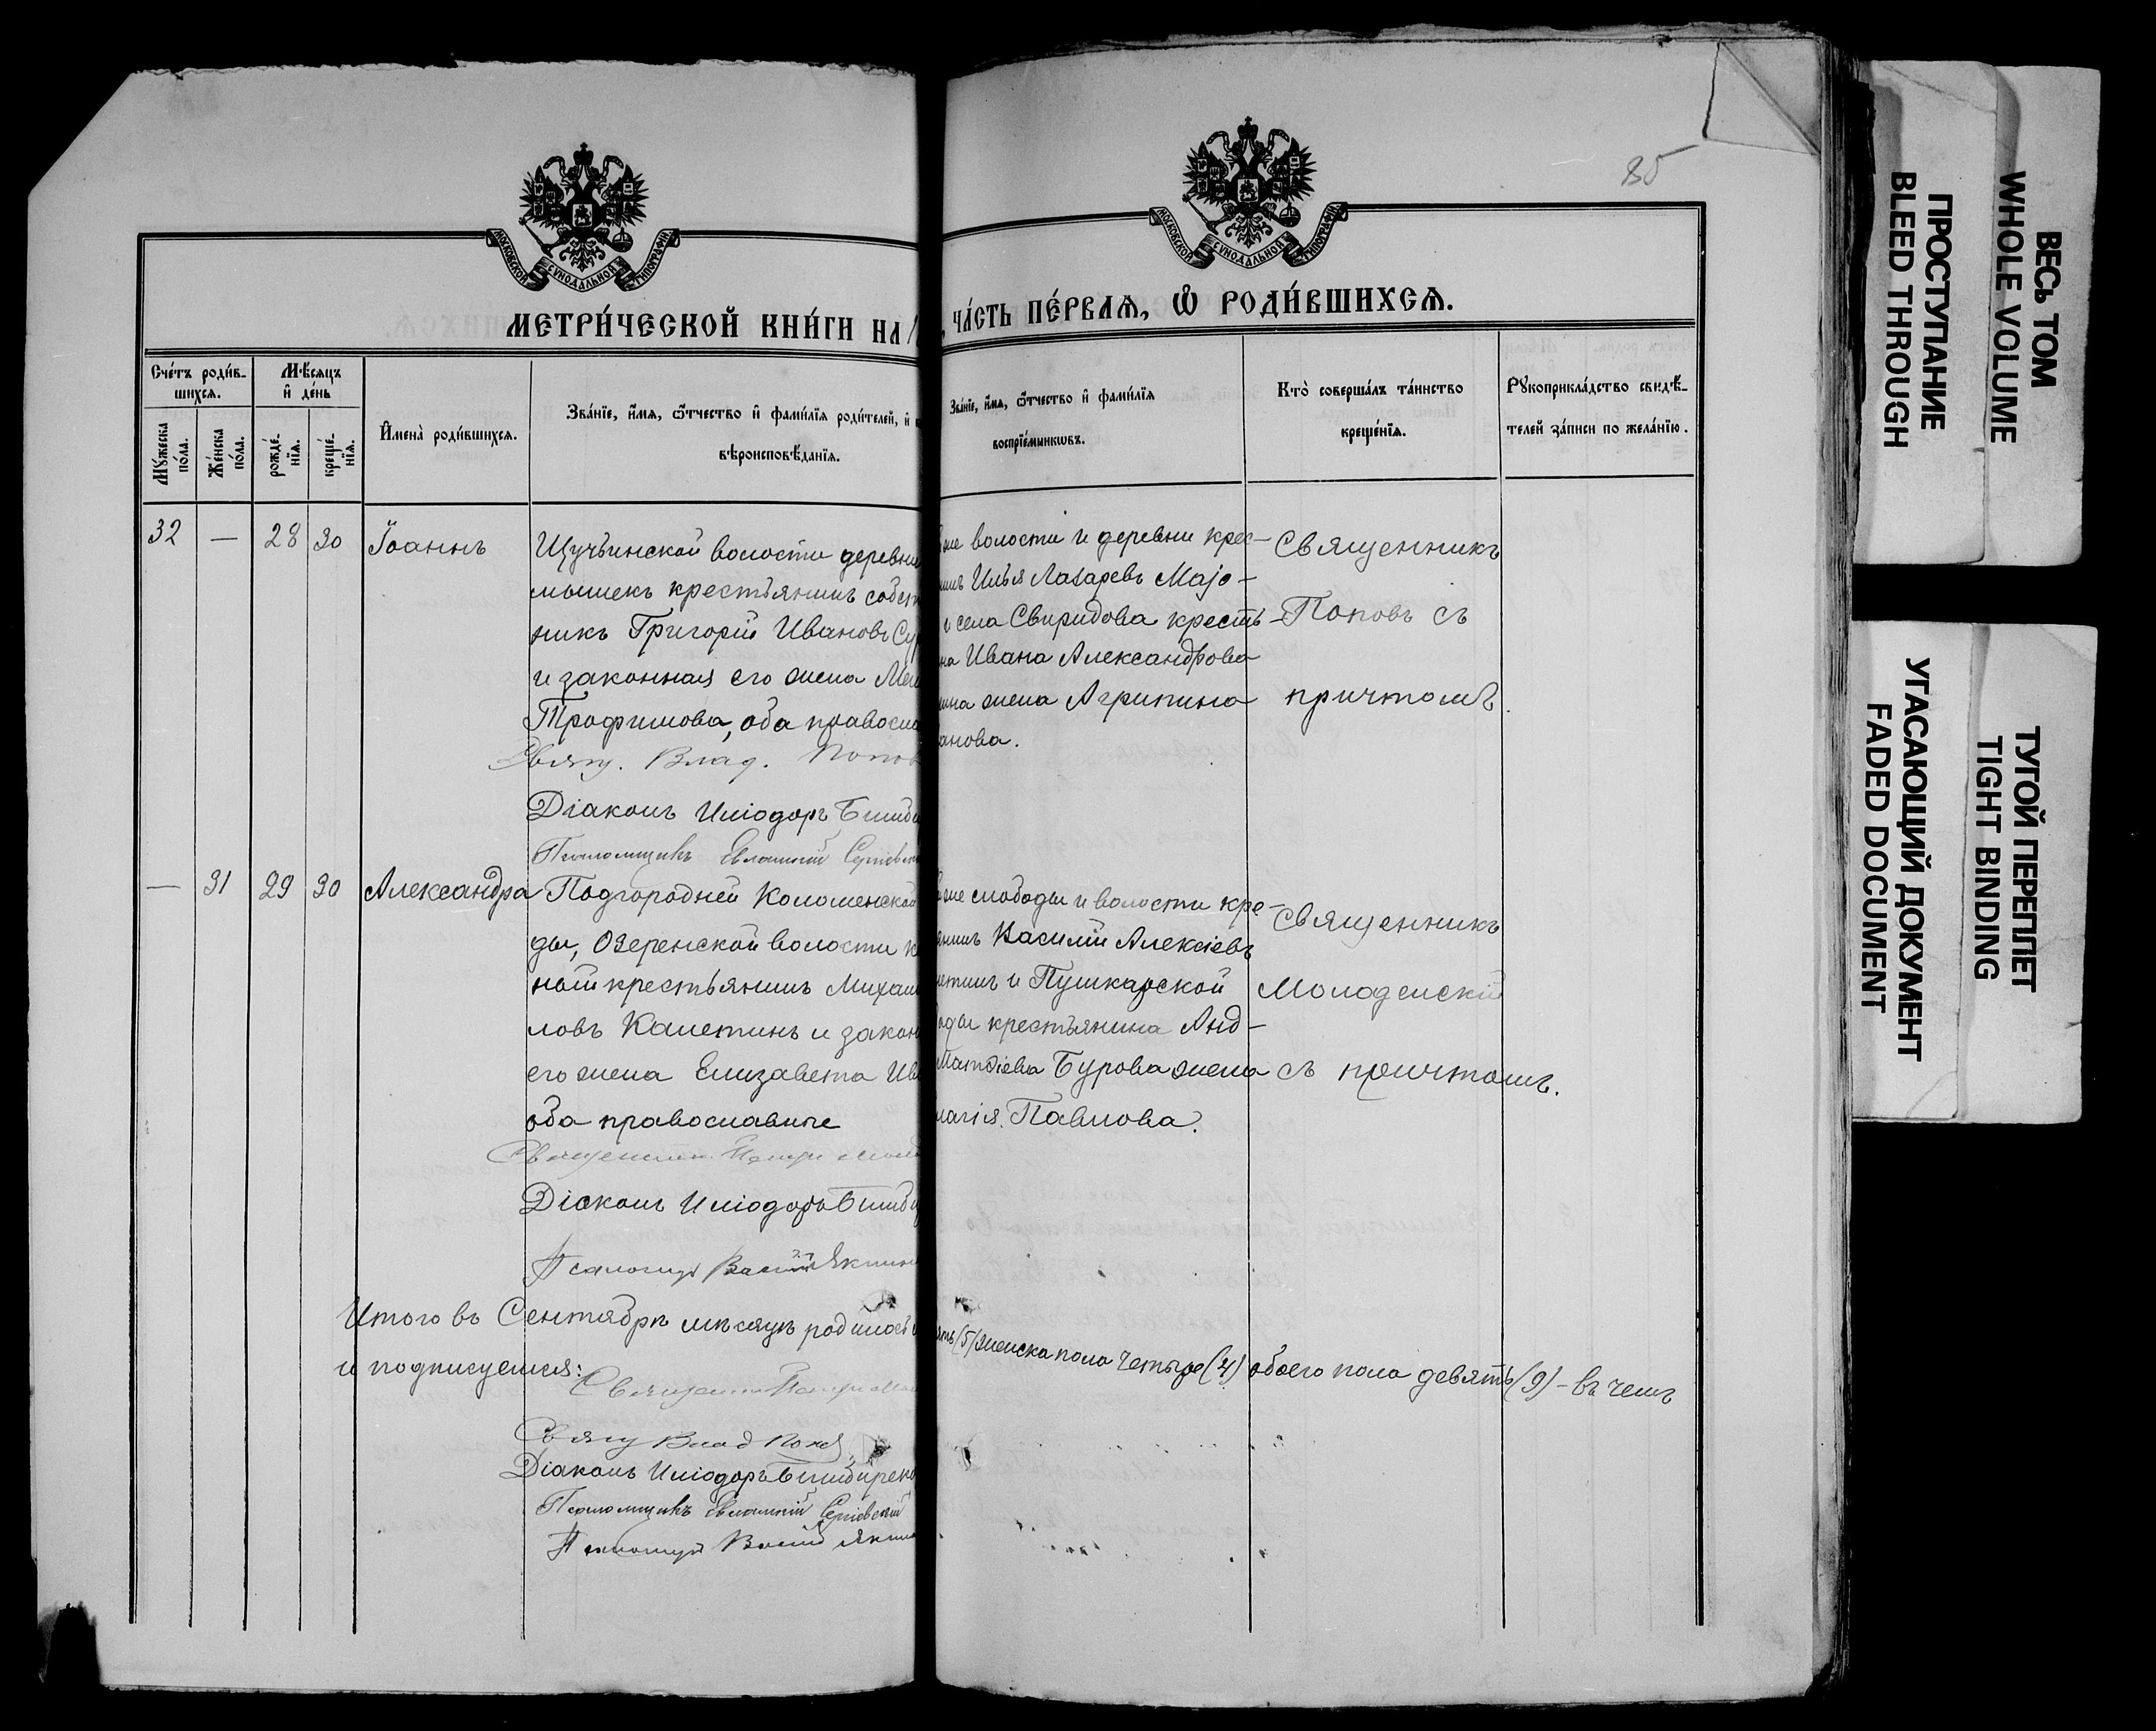 85
МОСКОВСКОЙ СѴНОДАЛЬНОЙ ТИПОГРАФІИ
МОСКОВСКОЙ СѴНОДАЛЬНОЙ ТИПОГРАФІИ
МЕТРИ́ЧЕСКОЙ КНИ́ГИ НА
ЧА́СТЬ ПЕ́РВАѦ, Ѽ РОДИ́ВШИХСѦ.
Сче́тъ роди́в-
шихсѧ.
Мꙋ́жеска по́ла.
Же́нска по́ла.
Мѣ́сѧцъ
и҆ де́нь
рожде́-
нїѧ.
креще́-
нїѧ.
И҆мена̀ роди́вшихсѧ.
Зва́нїе, и҆́мѧ, ѻ҆́тчество и҆ фами́лїѧ роди́телей, и҆
вѣроисповѣ́данїѧ.
Зва́нїе, и҆́мѧ, ѻ҆́тчество и҆ фами́лїѧ
воспрїе́мникѡвъ.
Кто̀ соверша́лъ та́инство
креще́нїѧ.
Рꙋкоприкла́дство свидѣ́-
телей за́писи по жела́нїю.
32 — 28 30 Іоаннъ
Щучьинской волости деревни
мышекъ крестьянинъ собст
никъ Григорій Ивановъ Су
и законная его жена Ме
Трофимова, оба правосла
Свящ. Влад. Попов
Діаконъ Иліодоръ Бимби
Псаломщикъ Евлампій Сергіевск
же волости и деревни крес-
нинъ Илья Лазаревъ Маро-
и села Свиридова кресть-
на Ивана Александрова
ина жена Агрипина
анова.
Священникъ
Поповъ съ
причтомъ.
— 31 29 30 Александра
Подгородней Коломенской
ды, Озеренской волости к
ной крестьянинъ Михаи
ловъ Калетинъ и закон
его жена Елизавета Ива
оба православные
Священникъ Петръ Моло
Діаконъ Иліодоръ Бимби
Псаломщ Василій Якин
же слободы и волости кре-
янинъ Василій Алексіевъ
летинъ и Пушкарской
оды крестьянина Анд-
Матѳіева Бурова жена
лагія Павлова.
Священникъ
Молоденскій
съ причтомъ.
Итого въ Сентябрѣ мѣсяцѣ родилось
ять (5) женска пола четыре (4) обоего пола девять (9) – въ чемъ
и подписуемся:
Священникъ Петръ Мол
Свящ Влад Попов
Діаконъ Иліодоръ Бимбиреко
Псаломщикъ Евлампій Сергіевскій
Псаломщ Василій Якин
ПРОСТУПАНИЕ
BLEED THROUGH
ВЕСЬ ТОМ
WHOLE VOLUME
УГАСАЮЩИЙ ДОКУМЕНТ
FADED DOCUMENT
ТУГОЙ ПЕРЕПЛЕТ
TIGHT BINDING